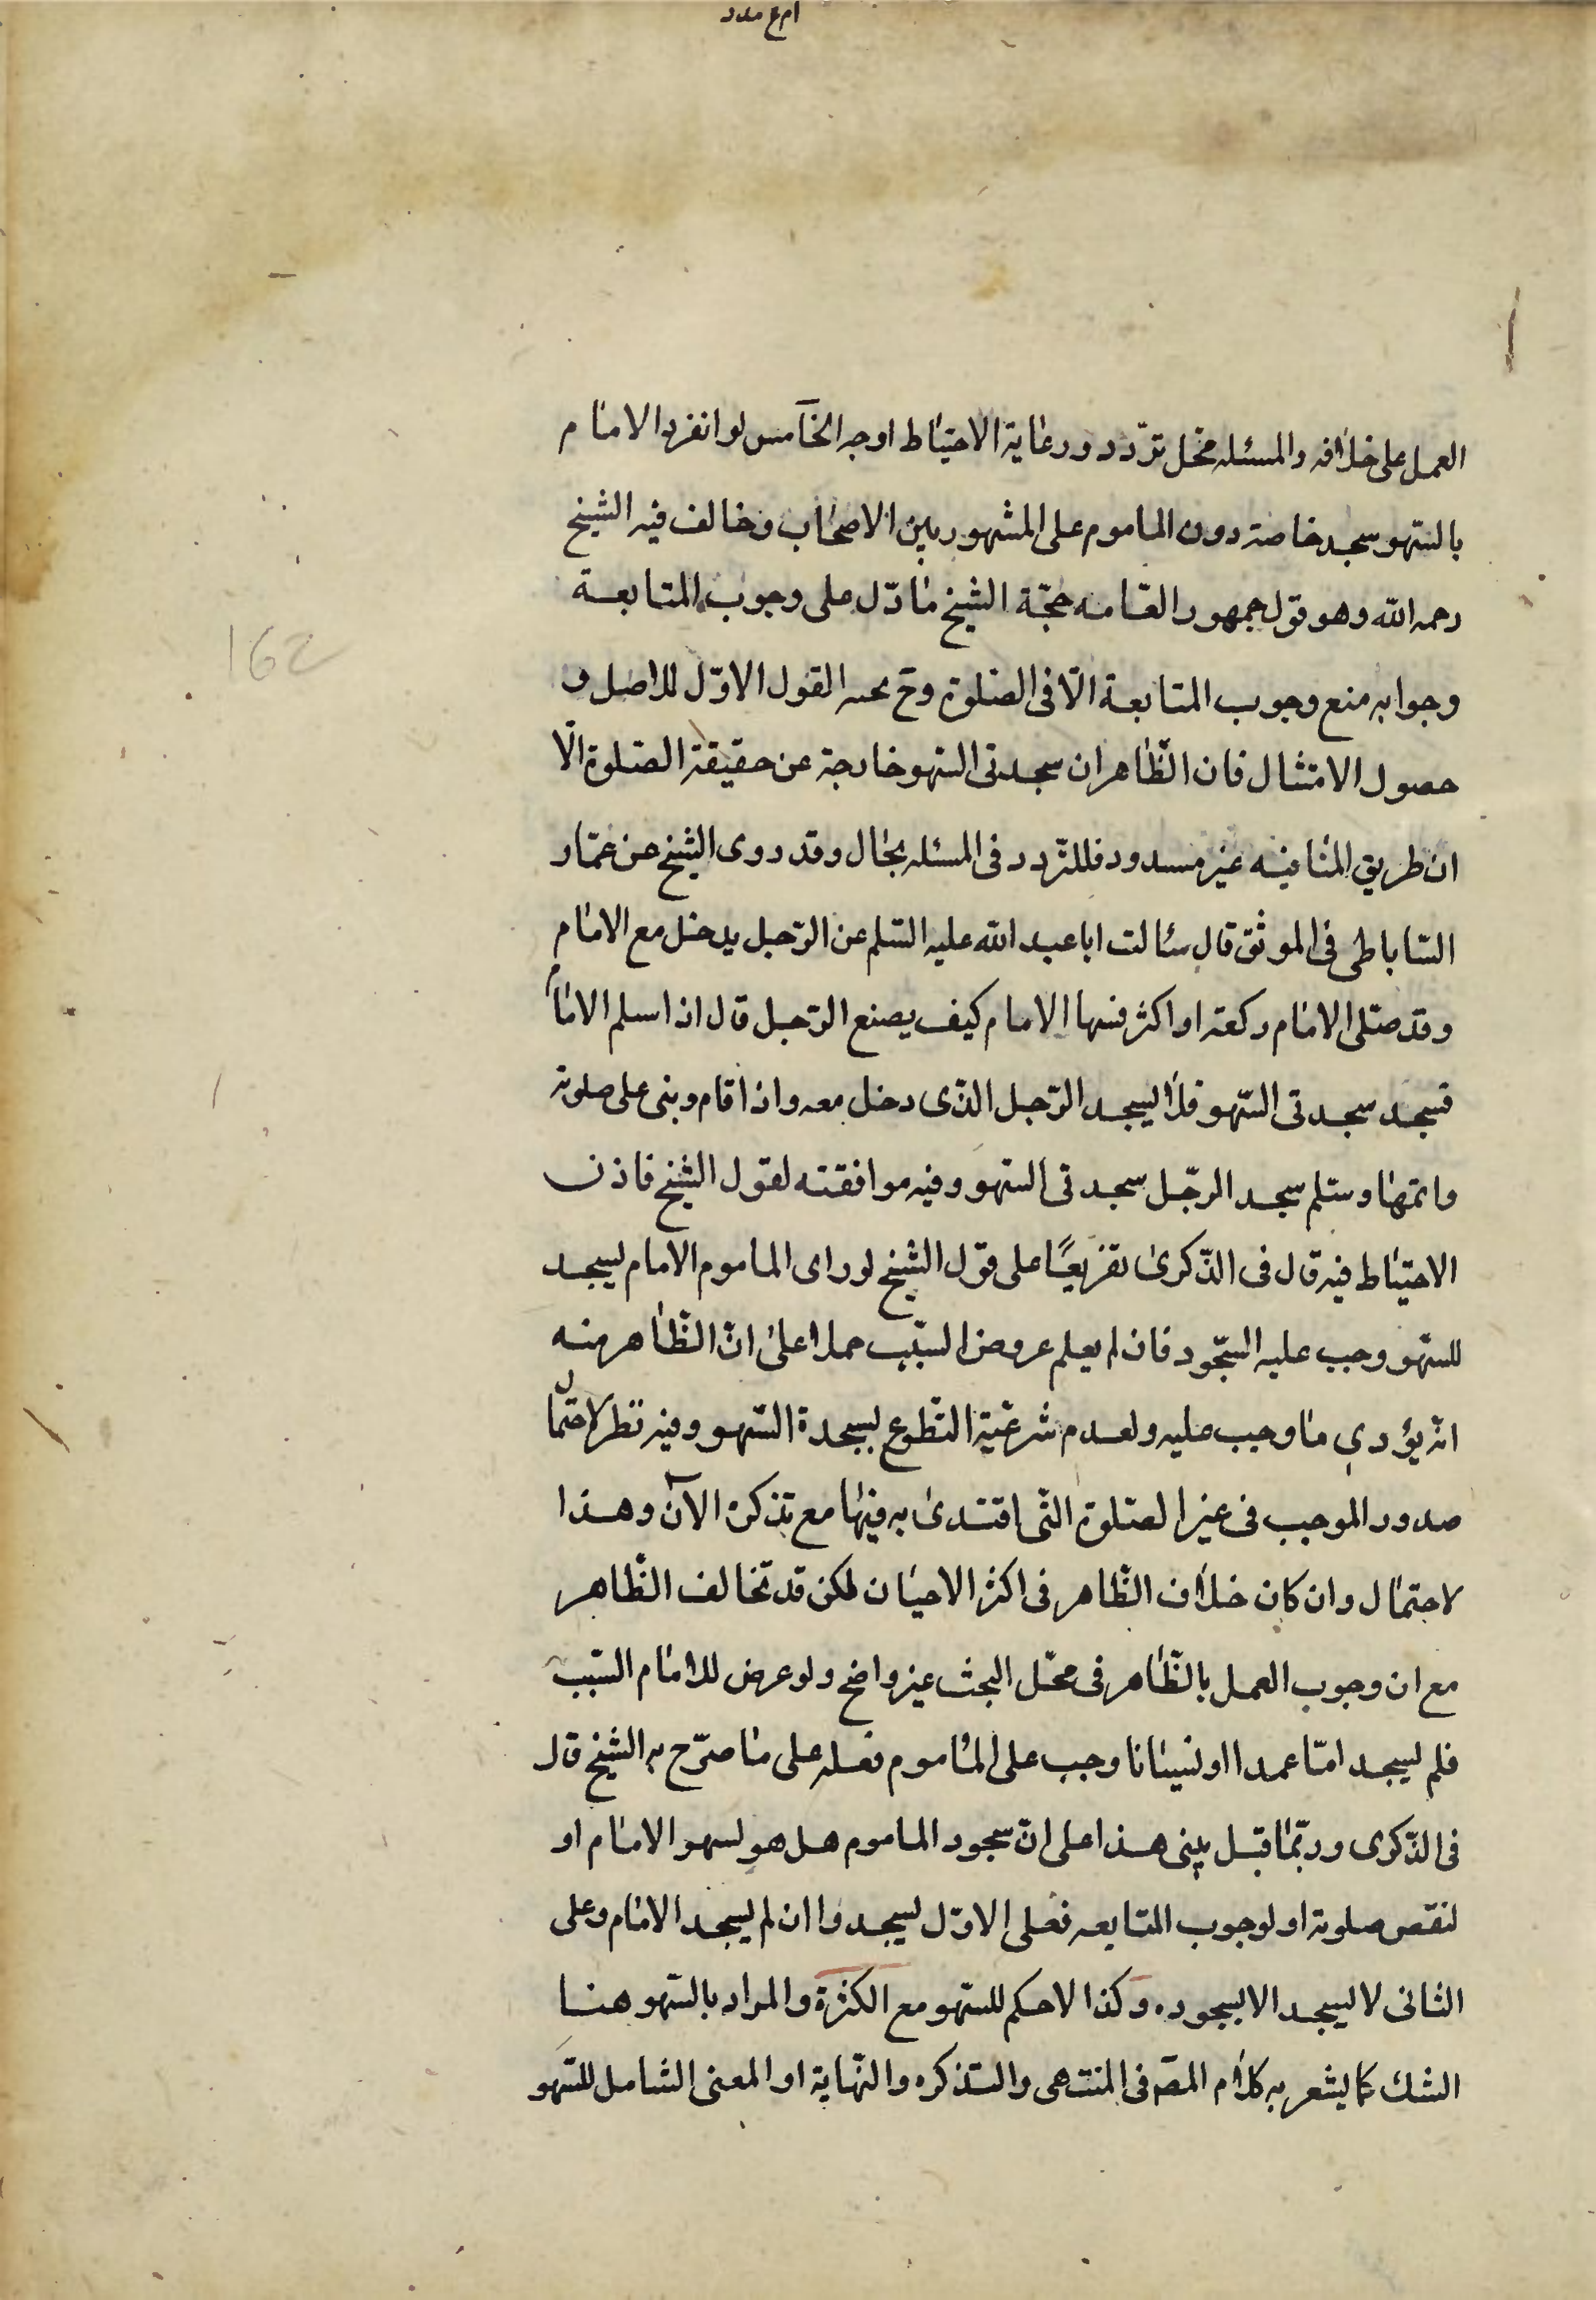 العمل على خلافه والمسئله محّل تردّد ورعاية الاحتياط اوجه الخامس لو انفرد الامام
بالسّهو سجد خاصة دون الماموم على المشهور بين الاصحاب وخالف فيه الشيخ
رحمه الله وهو قول جمهور العّامه حجّة الشيخ ما دّل على وجوب المتابعة
وجوابه منع وجوب المتابعة الّا فى الصّلوة وح القول الاوّل للاصل و
حصول الامتثال فان الظّاهر ان سجدتى السّهو خارجة عن حقيقة الصّلوة الّا
ان طريق المنافيه غير مسدود فللتّردد فى المسئله مجال وقد روى الشيخ عن عمّار
السّاباطى فى الموثق قال سئالت ابا عبد الله عليه السّلم عن الرّجل يدخل مع الامام
وقد صّلى الامام ركعة او اكثر فسها الامام كيف يصنع الرّجل قال اذا سلم الامام
فسجد سجدتى السّهو فلا يسجد الرّجل الذّى دخل معه واذا قام وبنى على صلوته
واتمها وسّلم سجد الرجّل سجدتى السّهو وفيه موافقته لقول الشيخ فاذن
الاحتياط فيه قال فى الذّكرى تفريعًا على قوّل الشّيخ لو راى الماموم الامام يسجد
للسّهو وجب عليه السّجود فان لم يعلم عروض السّبب حملا على انّ الظّاهر منه
انه يؤدى ما وجب عليه ولعدم شرعيّة التّطوع بسجدة السّهو وفيه نظر لاحتمال
صدور الموجب فى غير الصّلوة التّى اقتدى به فيها مع تذكره الآن وهذا
لاحتمال وان كان خلاف الظّاهر فى اكثر الاحيان لمكن قد تخالف الظّاهر
مع ان وجوب العمل بالظّاهر فى محّل البحث غير واضح ولو عرض للامام السّبب
فلم يسجد امّا عمدا او نسيانا وجب على الماموم فعله على ما صرّح به الشيخ قال
فى الذّكرى وربّما قيل يبنى هذا على انّ سجود الماموم هل هو لسهو الامام او
لنقص صلوته او لوجوب المتابعه فعلى الاوّل يسجد وا ان لم يسجد الامام وعلى
الثانى لا يسجد الا بسجوده وكذا لا حكم للسّهو مع الكثرة والمراد بالسّهو هنا
الشك كما يشعر به كلام المصّ فى المنتهى والتذكره والنّهاية او المعنى الشامل للسّهو
162